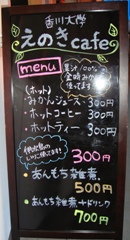 香川大学
えのきcafe
menu
果汁100%
金時みかん
使ってます
(ホット)
みかんジュース… 300円
ホットコーヒー… 300円
ホットティー… 300円
300円
あんもち雑煮…
500円
あんもち雑煮+ドリンク
700円